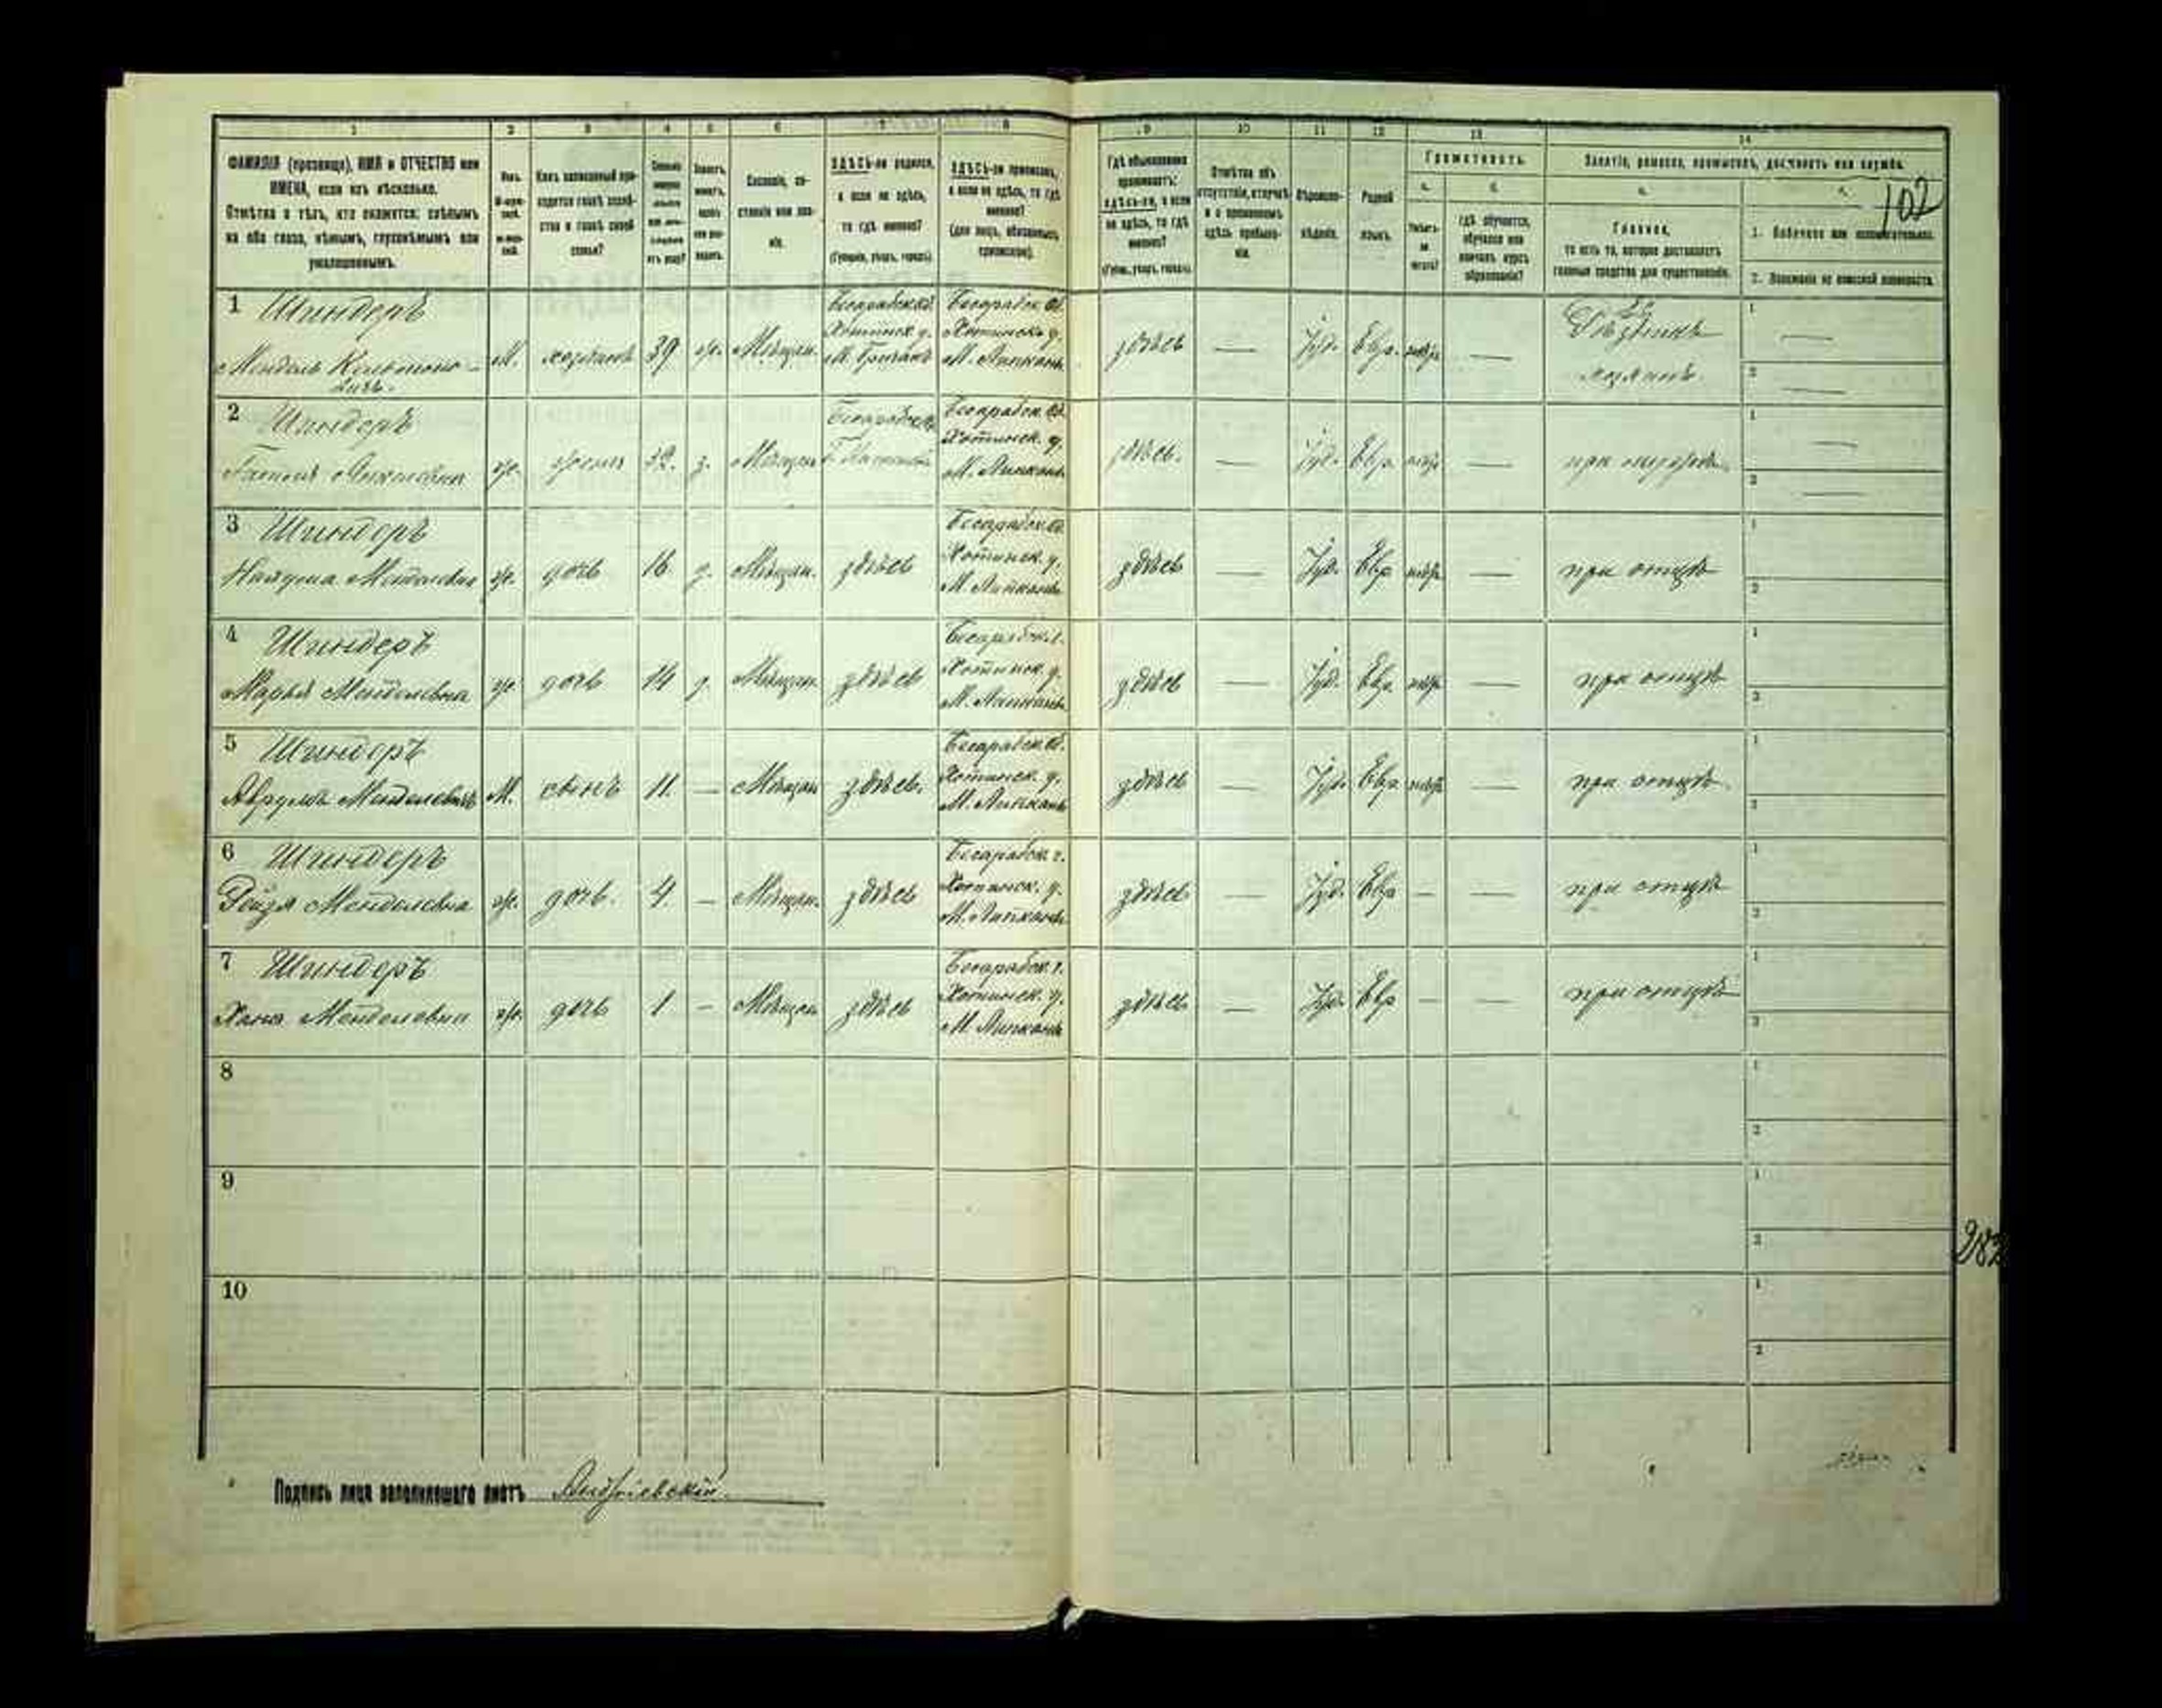 1 2 3 4 5 6 7 8 9 10 11 12 13 14
ФАМИЛІЯ (прозвище), ИМЯ и ОТЧЕСТВО или
ИМЕНА, если ихъ нѣсколько.
Отмѣтка о тѣхъ, кто окажется: слѣпымъ
на оба глаза, нѣмымъ, глухонѣмымъ или
умалишеннымъ.
Полъ.
Какъ записанный при-
ходится главѣ хозяй-
ства и главѣ своей
семьи?
Сословіе, со-
стояніе или зва-
ніе.
ЗДѢСЬ-ли родился,
а если не здѣсь,
то гдѣ именно?
(Губернія, уѣздъ, городъ).
ЗДѢСЬ-ли приписанъ,
а если не здѣсь, то гдѣ
именно?
(для лицъ, обязанныхъ
припискою).
Гдѣ обыкновенно
проживаетъ:
здѣсь-ли, а если
не здѣсь, то гдѣ
именно?
(Губер., уѣздъ, городъ).
Отмѣтка объ
отсутствіи, отлучкѣ
и о временномъ
здѣсь пребыва-
ніи.
Вѣроиспо-
вѣданіе.
Родной
языкъ.
Грамотность.
а. б.
Умѣетъ-
ли
читать?
гдѣ обучается,
обучался или
кончилъ курсъ
образованія?
Занятіе, ремесло, промыселъ, должность или служба.
а.
Главное,
то есть то, которое доставляетъ
главныя средства для существованія.
102
1. Побочное или вспомогательное.
2. Положеніе по воинской повинности.
1 Шиндеръ
М. хозяинъ 39 ж. Мѣщан.
Бесарабск.
Хотинск. у.
Бесарабск.
Хотинск. у.
М. Липканы
здѣсь — Іуд. Евр. — хозяинъ
2 Шиндеръ
Янкелевна ж. жена 32. з. Мѣщан.
Бесарабск.
Хотинск. у.
М. Липканы
здѣсь. — Іуд. Евр. —
3 Шиндеръ
Менделевна ж. дочь 16 д. Мѣщан. здѣсь
Бесарабск.
Хотинск. у.
М. Липканы
здѣсь — Іуд. Евр. — при отцѣ
4 Шиндеръ
Марья Менделевна ж. дочь 14 д. Мѣщан. здѣсь
Бесарабск.
Хотинск. у.
М. Липканы
здѣсь — Іуд. Евр. — при отцѣ
5 Шиндеръ
Аврумъ Менделевичъ М. сынъ 11. — Мѣщан здѣсь.
Бесарабск.
Хотинск. у.
М. Липканы
здѣсь — Іуд. Евр. — при отцѣ.
6 Шиндеръ
Рейзя Менделевна ж. дочь. 4. — Мѣщан. здѣсь
Бесарабск. г.
Хотинск. у.
М. Липканы
здѣсь — Іуд. Евр — — при отцѣ
7 Шиндеръ
Хана Менделевна ж. дочь 1 — Мѣщан здѣсь
Бесарабск. г.
Хотинск. у.
М. Липканы
здѣсь — Іуд. Евр — — при отцѣ
8
9
10
Подпись лица заполнившаго листъ Андріевскій